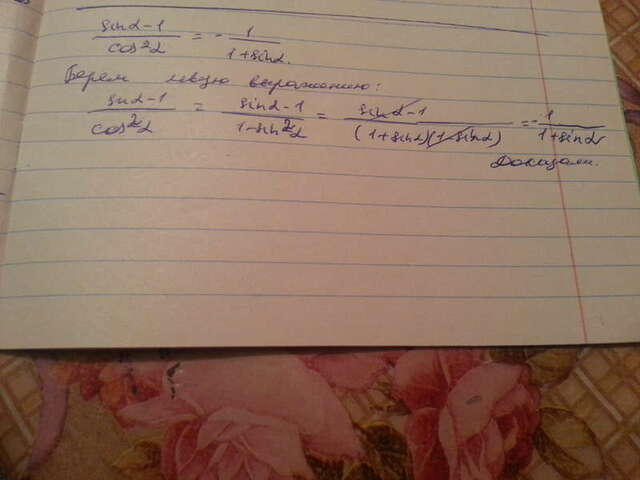 sinα-1/cos²α = - 1/1+sinα.
Берем левую выражению:
sinα-1/cos²α = sinα-1/1-sin²α = sinα-1/(1+sinα)(1-sinα) = - 1/1+sinα
Доказали.